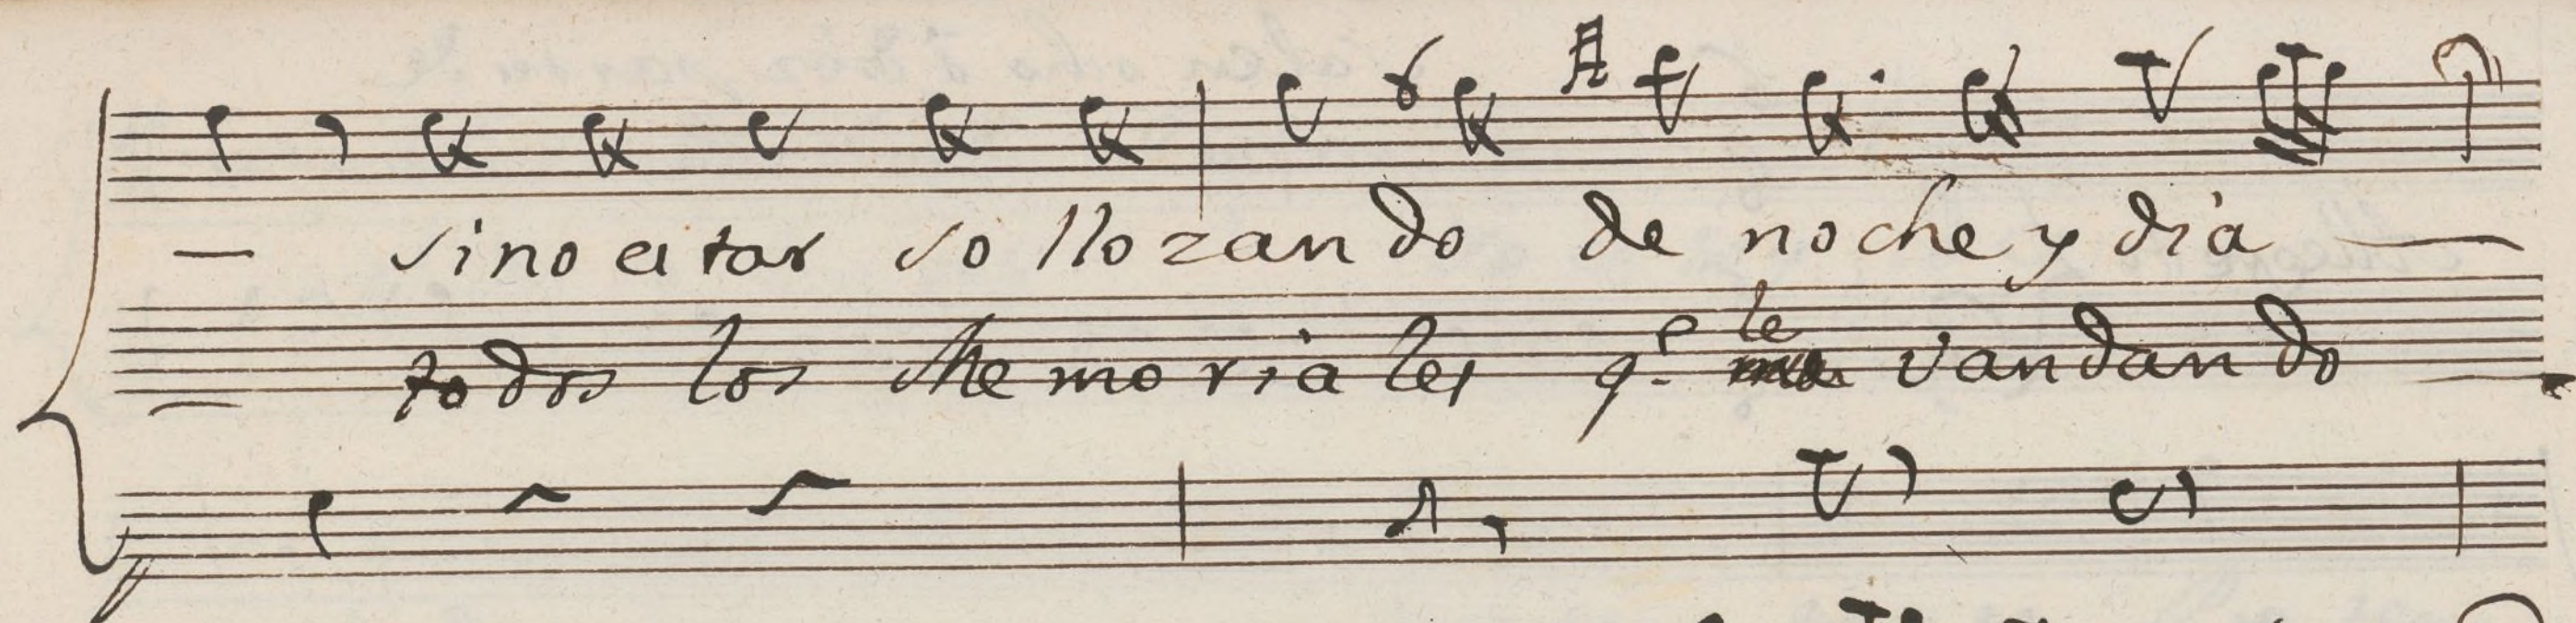 — sino estar so llozan do de noche y dia —
— todos los Memoria les q.e le van dan do —